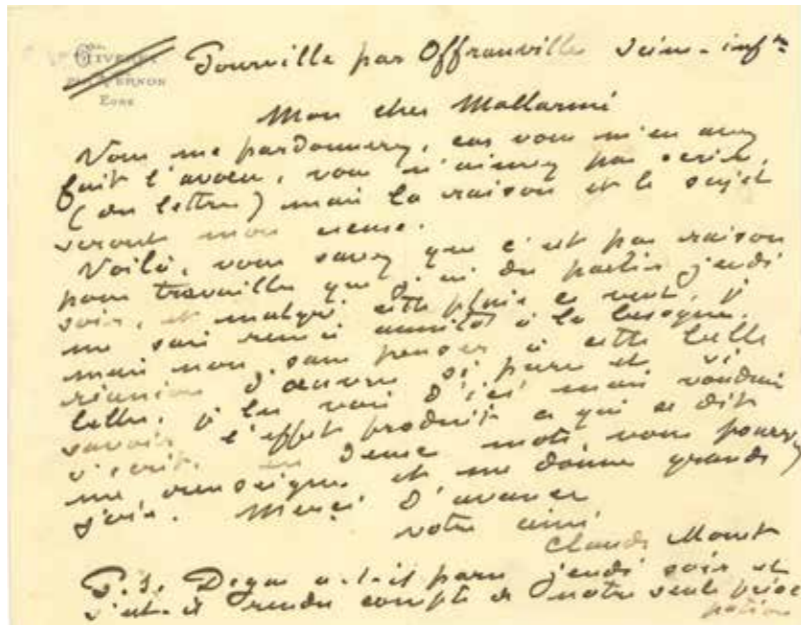 GIVERNY
PAR VERNON
EURE
Pourville par Offranville Seine-infre
Mon cher Mallarmé
Vous me pardonnerez, car vous m'en avez
fait l'aveu, vous n'aimez pas écrire,
(des lettres) mais la raison et le sujet
seront mon excuse.
Voilà, vous savez que c'est par raison
pour travailler que j'ai dû partir jeudi
soir, et malgré cette pluie et vent, je
me suis remis aussitôt à la besogne.
mais non sans penser à cette belle
réunion d'œuvres si pures et si
belles, je les vois d'ici mais voudrais
savoir l'effet produit ce qui se dit
s'écrit. en deux mots, vous pourrez
me renseigner et me donner grande
joie. Merci d'avance
votre ami
Claude Monet
P.S. Degas a-t-il paru jeudi soir et
s'est-il rendu compte de notre seule préoc
pation